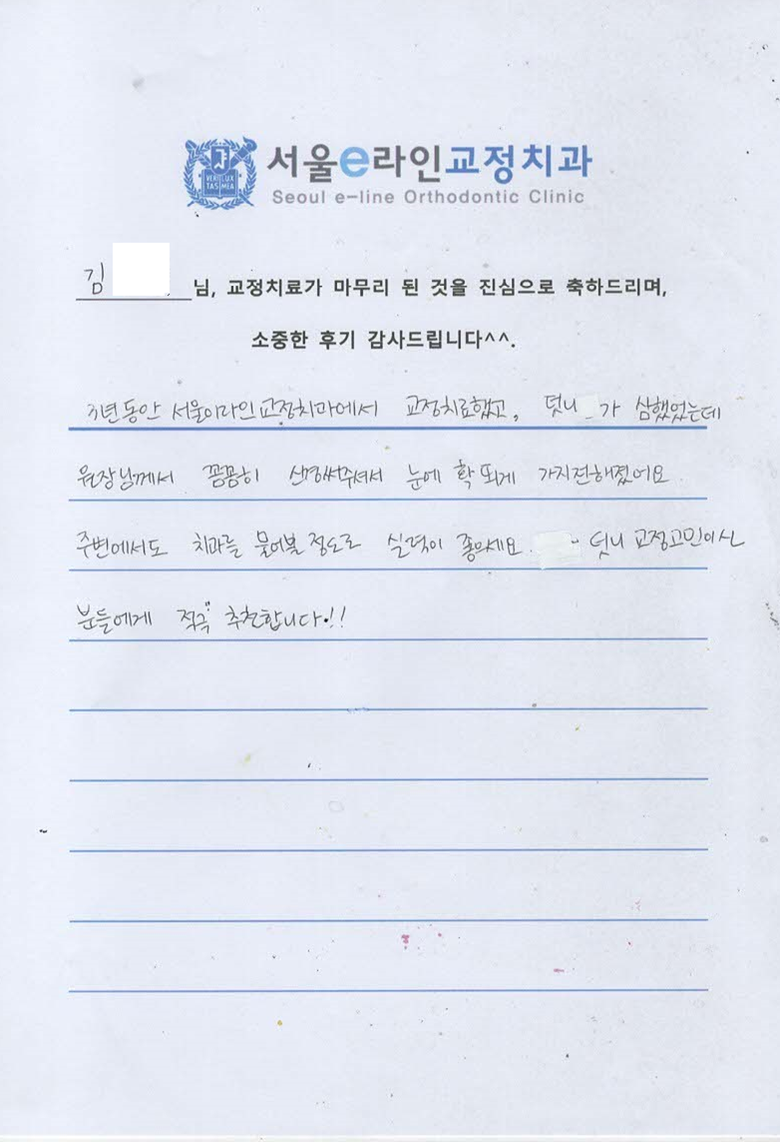 VERI LUX TAS MEA
서울e라인교정치과
Seoul e-line Orthodontic Clinic
김 님, 교정치료가 마무리 된 것을 진심으로 축하드리며,
소중한 후기 감사드립니다^^.
3년동안 서울이라인교정치과에서 교정치료했고, 덧니 가 심했었는데
원장님께서 꼼꼼히 신경써주셔서 눈에 확 띄게 가지런해졌어요
주변에서도 치과를 물어볼 정도로 실력이 좋으세요. 덧니 교정고민이신
분들에게 적극 추천합니다!!